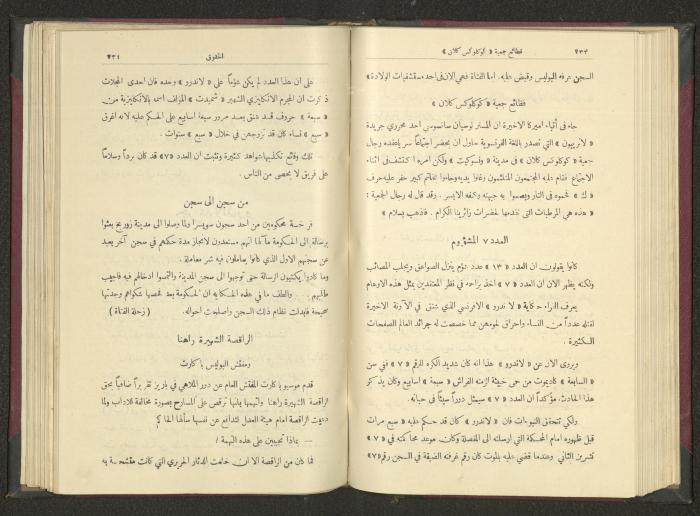 ٢٣٣ فظائع جمعية «كوكلوكس كلان»
السجن عرفه البوليس وقبض عليه. اما الفتاة فهي الآن في احد مستشفيات الولادة»
فظائع جمعية «كوكلوكس كلان»
جاء في أنباء اميركا الاخيرة ان المستر لوسيان سانسوس احد محرري جريدة
« لاتريبون » التي تصدر باللغة الفرنسوية حاول ان يحضر اجتماعاً سرياً عقده رجال
جمعية « كوكلوكس كلان » في مدينة
الاجتماع فقام عليه المجتمعون الملثمون وقيدوا يديه وجاءوا بخاتم كبير حفر عليه حرف
« ك » فحموه في النار ووصموا به جبينه وكتفه الايسر. وقد قال له رجال الجمعية :
« هذه هي المرطبات التي نقدمها لحضرات زائرينا الكرام . فاذهب بسلام »
العدد ٧ المشؤوم
كانوا يقولون ان العدد « ١٣ » عدد شؤم ينزل الصواعق ويجلب المصائب
ولكنه يظهر الان ان العدد « ٧ » اخذ يزاحمه في نظر المعتقدين بمثل هذه الاوهام
يعرف القراء حكاية « لاندرو » الافرنسي الذي شنق في الآونة الاخيرة
لقتله عدداً من النساء واحراق لحومهن مما خصصت له جرائد العالم الصفحات
الكثيرة .
ويروى الان عن « لاندرو » هذا انه كان شديد الكره للرقم « ٧ » ففي سن
« السابعة » كاد يموت من حمى خبيثة الزمته الفراش « سبعة » اسابيع وكان يذكر
هذا الحادث مؤكداً ان العدد « ٧ » سيمثل دوراً سيئاً في حياته.
ولكي تتحقق النبوءات فان « لاندرو » كان قد حكم عليه « سبع مرات
قبل ظهوره امام المحكمة التي ارسلته الى المقصلة وكان موعد محاكمته في « ٧ »
تشرين الثاني وعندما قضي عليه بالموت كان رقم غرفته الضيقة في السجن رقم «٧»
الحقوق ٢٣٤
على ان هذا العدد لم يكن شؤماً على « لاندرو » وحده فان احدى المجلات
ذكرت ان المجرم الانكليزي الشهير « شميدت » المؤلف اسمه بالانكليزية من
« سبعة » حروف قد شنق بعد مرور سبعة اسابيع على الحكم عليه لانه اغرق
« سبع » نساء كان قد تزوجهن في خلال « سبع » سنوات .
تلك وقائع تكذبها شواهد كثيرة وتثبت ان العدد «٧» قد كان برداً وسلاماً
على فريق لا يحصى من الناس .
من سجن الى سجن
فر خمسة محكومين من احد سجون سويسرا ولما وصلوا الى مدينة زوريخ بعثوا
برسالة الى الحكومة مآلها انهم مستعدون لانجاز مدة حكمهم في سجن آخر بعيد
عن سجنهم الاول الذي كانوا يعاملون فيه شر معاملة .
وما كادوا يكتبون الرسالة حتى توجهوا الى سجن المدينة والتمسوا ادخالهم فيه فاجيب
طلبهم . والطف ما في هذه الحكاية ان الحكومة بعد فحصها شكواهم وجدتها
صحيحة فابدلت نظام ذلك السجن واصلحت احواله. ( زحلة الفتاة )
الراقصة الشهيرة راهنا
ومفتش البوليس باكارت
قدم موسيو باكارت المفتش العام عن دور الملاهي في باريز تقريراً ضافياً بحق
الراقصة الشهيرة راهنا واتهمها بانها ترقص على المسارح بصورة مخالفة للآداب ولما
دعيت الراقصة امام هيئة العدل لتدافع عن نفسها سألها الحاكم
— بماذا تجيبين على هذه التهمة ؟
فما كان من الراقصة الا ان خلعت الدثار الحريري التي كانت متشحة به